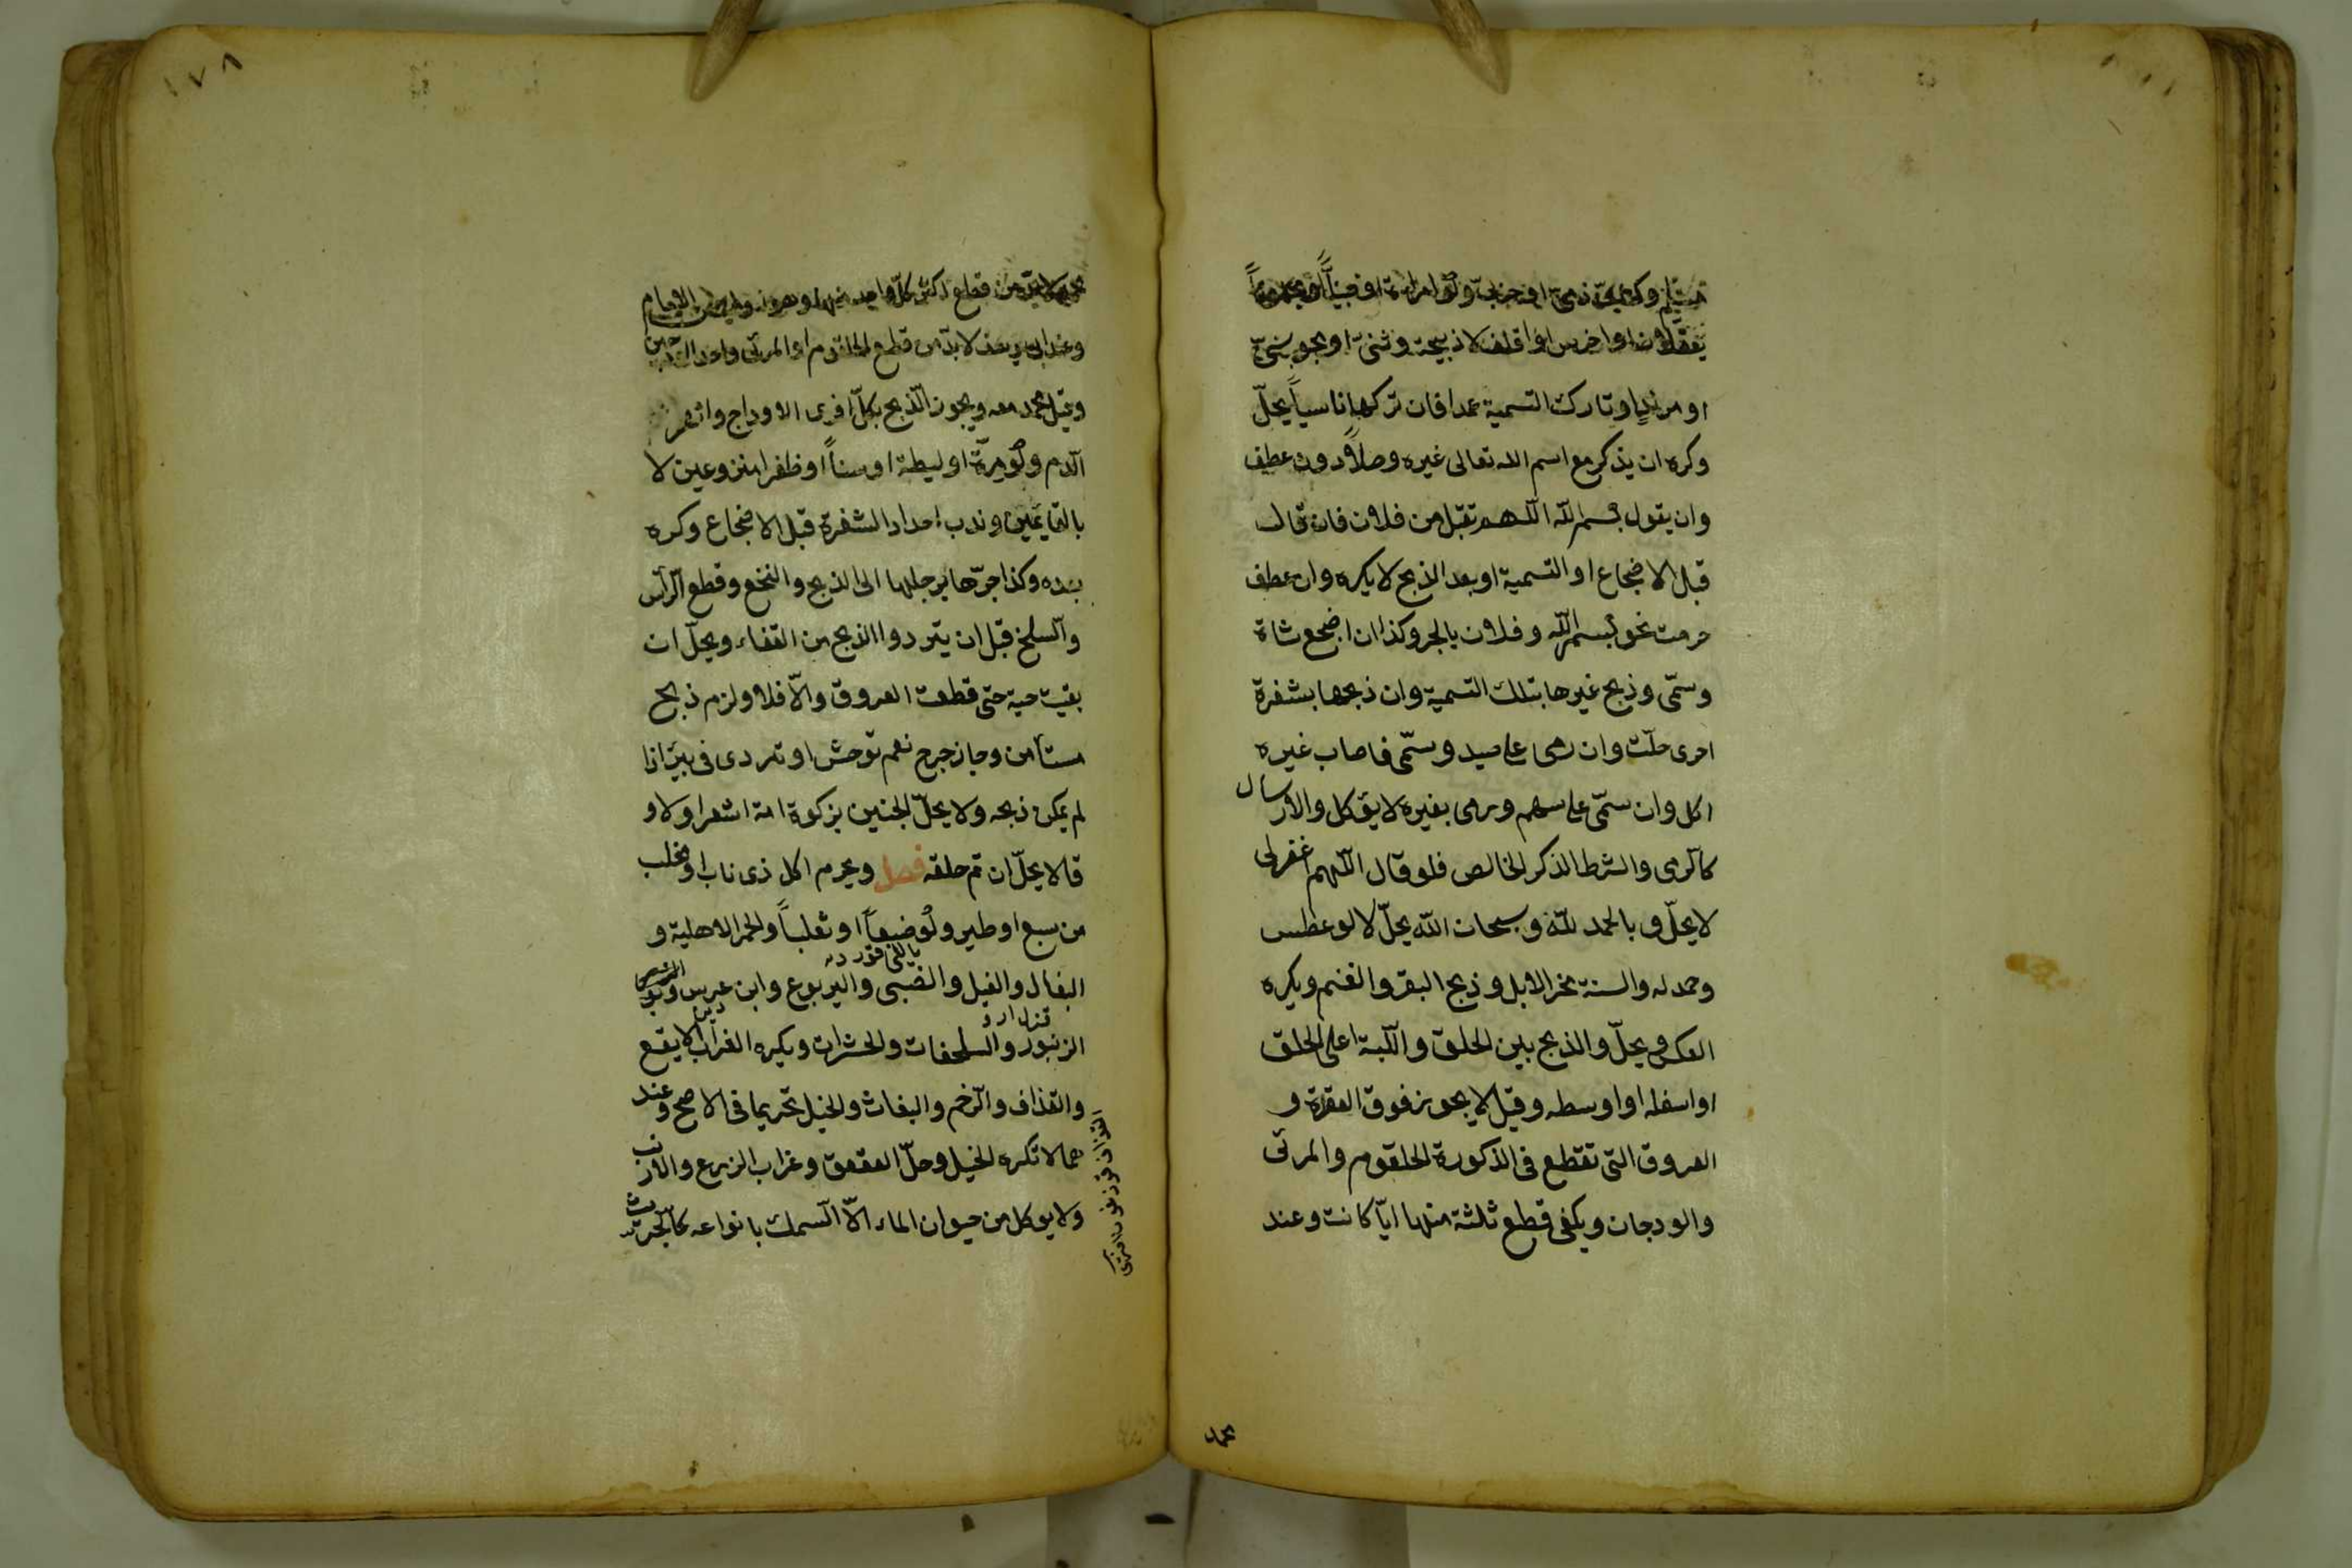 مسلم وكتابي ذمي او حربي ولو امرأة او صبيا او مجنونا
يعقلان او اخرس او اقلف لا ذبيحة وثني او مجوسي
او مرتد او تارك التسمية عمدا فان تركها ناسياً يحلّ
وكره ان يذكر مع اسم الله تعالى غيره وصلاً دون عطف
وان يقول بسم الله اللهم تقبل من فلان فان قال
قبل الاضجاع او التسمية او بعد الذبح لا يكره وان عطف
حرمت نحو بسم الله وفلان بالجر وكذا ان اضجع شاة
وسمّى وذبح غيرها بتلك التسمية وان ذبحها بشفرة
اخرى حلّت وان رمى على صيد وسمّى فاصاب غيره
اكل وان سمّى على سهم ورمى بغيره لا يؤكل والارسال
كالرمى والشرط الذكر الخالص فلو قال اللهم اغفرلى
لا يحلّ و بالحمد لله وسبحان الله يحلّ لا لو عطس
وحمد له والسنة نحر الابل وذبح البقر والغنم ويكره
العكس ويحلّ والذبح بين الحلق واللّبة اعلى الحلق
او اسفله او اوسطه وقيل لا يجوز فوق العقدة و
العروق التى تقطع فى الذكوة الحلقوم والمرئى
والودجان ويكفى قطع ثلثة منها ايّا كانت وعند
محمد
١٧٨
محمد لا بد من قطع اكثر كلّ واحد منها وهو رواية عن الامام
وعند ابى يوسف لا بدّ من قطع الحلقوم او المرئى واحد الودجين
وقيل محمد معه ويجوز الذبح بكلّ ما افرى الاوداج وانهر
الدم ولو مروة او ليطة او سناً او ظفرا منزوعين لا
بالقايمين وندب احداد الشفرة قبل الاضجاع وكره
بعده وكذا جرّها برجلها الى الذبح والنخع وقطع الرأس
والسلخ قبل ان يتبرد والذبح من القفاء ويحلّ ان
بقيت حية حتى قطعت العروق والّا فلا ولزم ذبح
مستأمن وجاز جرح نعم توحش او تردى فى بئر اذا
لم يمكن ذبحه ولا يحلّ الجنين بزكوة امة اشعر اولا و
قالا يحلّ ان تم خلقه فصل ويحرم اكل ذى ناب او مخلب
من سبع او طير ولو ضبعاً او ثعلباً والحمر الاهلية و
البغال والفيل والضبى واليربوع وابن عرس و
الزنبور والسلحفات والحشرات ويكره الغراب الابقع
والغذاف والرخم والبغاث والخيل تحريما فى الاصح وعند
هما لا تكره الخيل وحلّ العقعق وغراب الزرع والارنب
ولا يؤكل من حيوان الماء الّا السمك بانواعه كالجريث